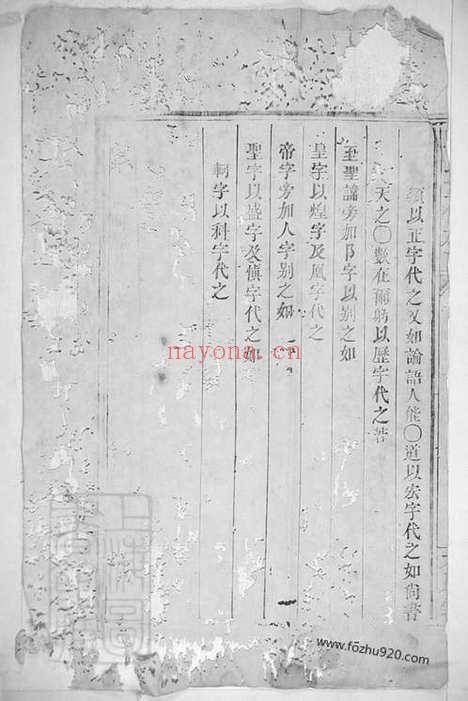 以正字代之又如論語人能〇道以宏字代之如尙書
天之〇數在爾躬以歷字代之若
至聖諱旁加阝字以別之如
皇字以煌字及凰字代之
帝字旁加人字別之如
聖字以盛字及慎字代之如
軻字以科字代之
nayona.cn
www.fozhu920.com